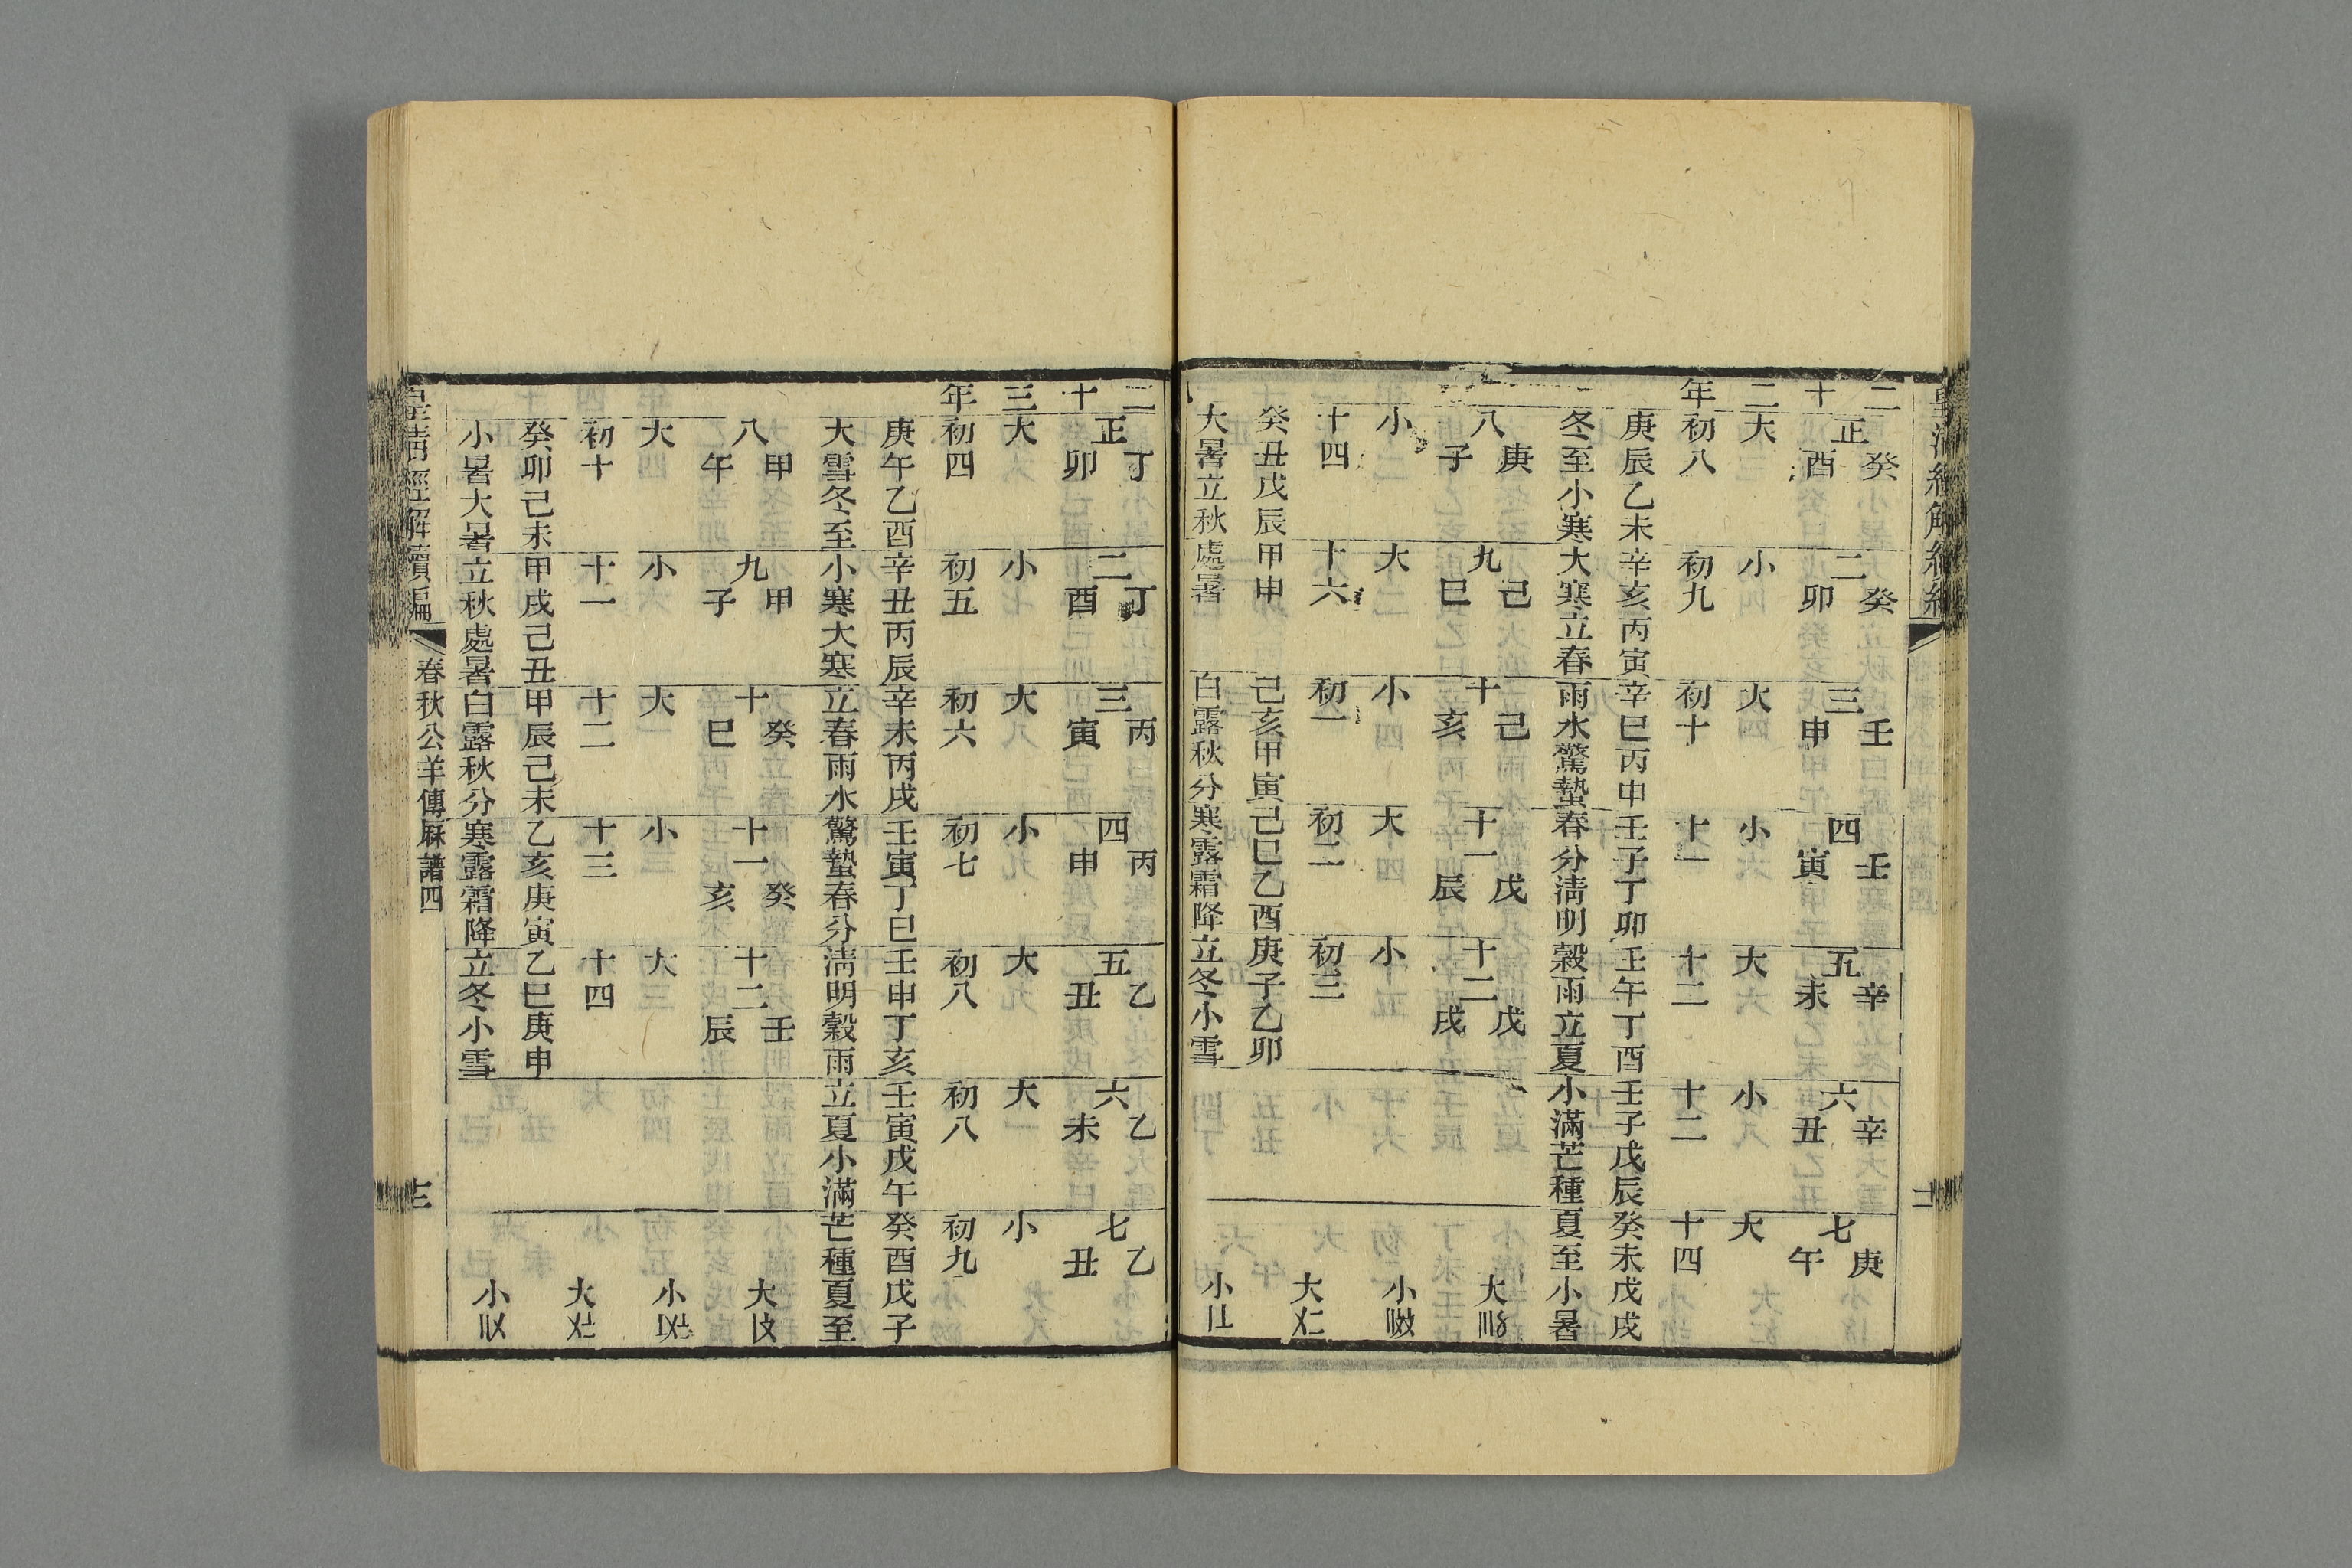 二十二年
正癸酉 二癸卯 三壬申 四壬寅 五辛未 六辛丑 七庚午
大 小 大 小 大 小 大
初八 初九 初十 十一 十二 十二 十四
庚辰乙未 辛亥丙寅 辛巳丙申 壬子丁卯 壬午丁酉 壬子戊辰 癸未戊戌
冬至小寒 大寒立春 雨水驚蟄 春分淸明 穀雨立夏 小滿芒種 夏至小暑
八庚子 九己巳 十己亥 十一戊辰 十二戊戌 大
小 大 小 大 小 小
十四 十六 初一 初二 初三 大
癸丑戊辰 甲申 己亥甲寅 己巳乙酉 庚子乙卯
大暑立秋 處暑 白露秋分 寒露霜降 立冬小雪 小
二十三年
正丁卯 二丁酉 三丙寅 四丙申 五乙丑 六乙未 七乙丑
大 小 大 小 大 大 小
初四 初五 初六 初七 初八 初八 初九
庚午乙酉 辛丑丙辰 辛未丙戌 壬寅丁巳 壬申丁亥 壬寅戊午 癸酉戊子
大雪冬至 小寒大寒 立春雨水 驚蟄春分 淸明穀雨 立夏小滿 芒種夏至
八甲午 九甲子 十癸巳 十一癸亥 十二壬辰 大
大 小 大 小 大 小
初十 十一 十二 十三 十四 大
癸卯己未 甲戌己丑 甲辰己未 乙亥庚寅 乙巳庚申
小暑大暑 立秋處暑 白露秋分 寒露霜降 立冬小雪 小
皇淸經解續編 春秋公羊傳厤譜四 十二